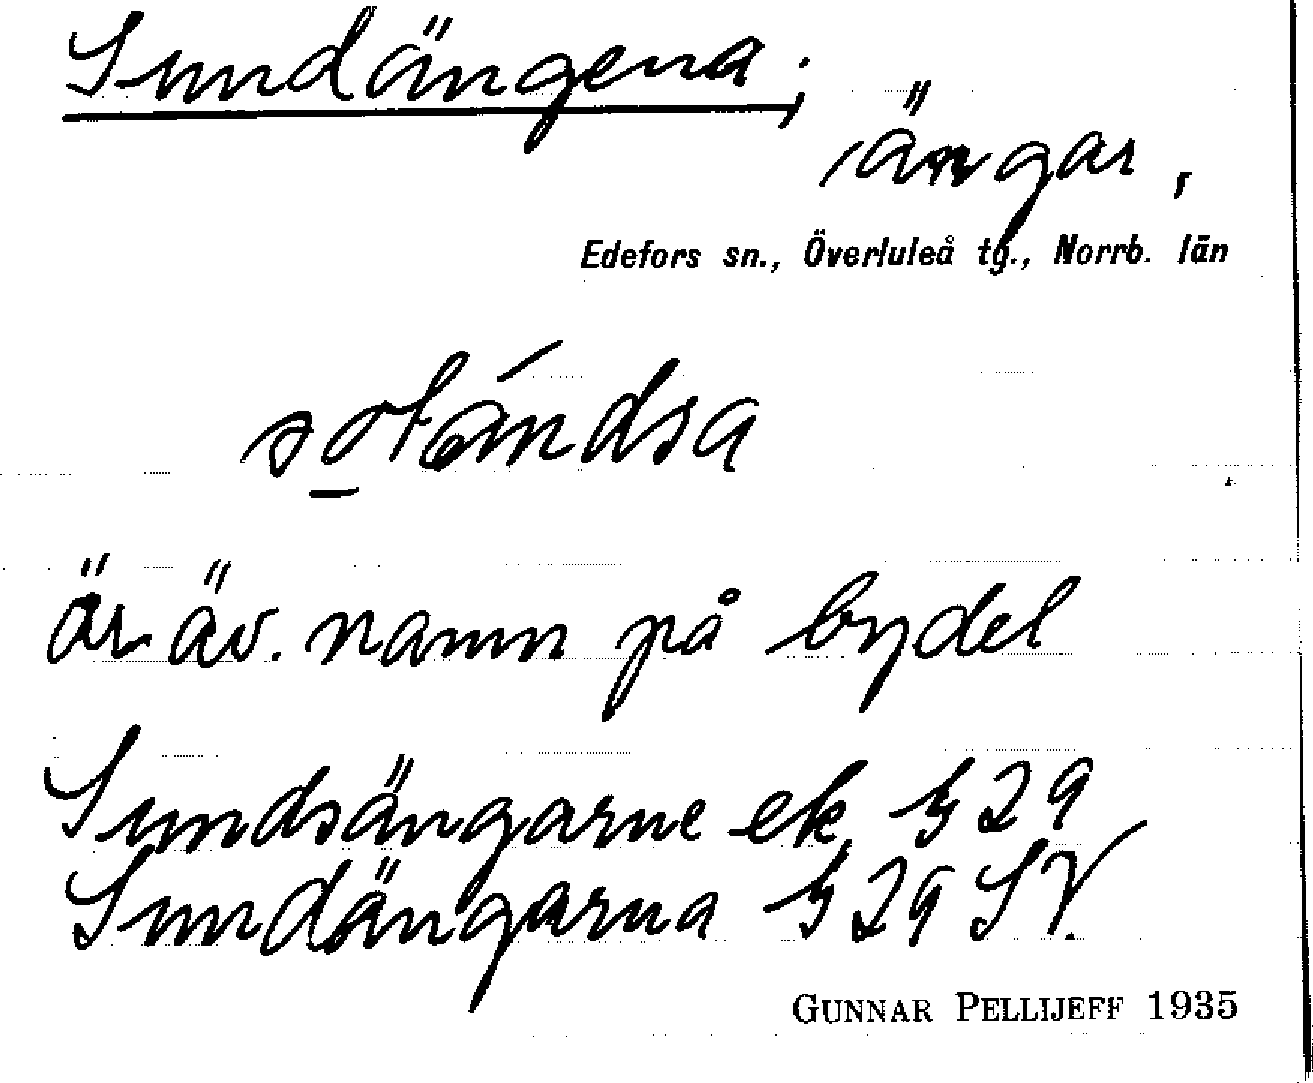 Sundängena;
ängar,
Edefors sn., Överluleå tg., Norrb. län
är äv. namn på bydel
Sundsängarne ek 29
Sundängarna 29 SV.
GUNNAR PELLIJEFF 1935